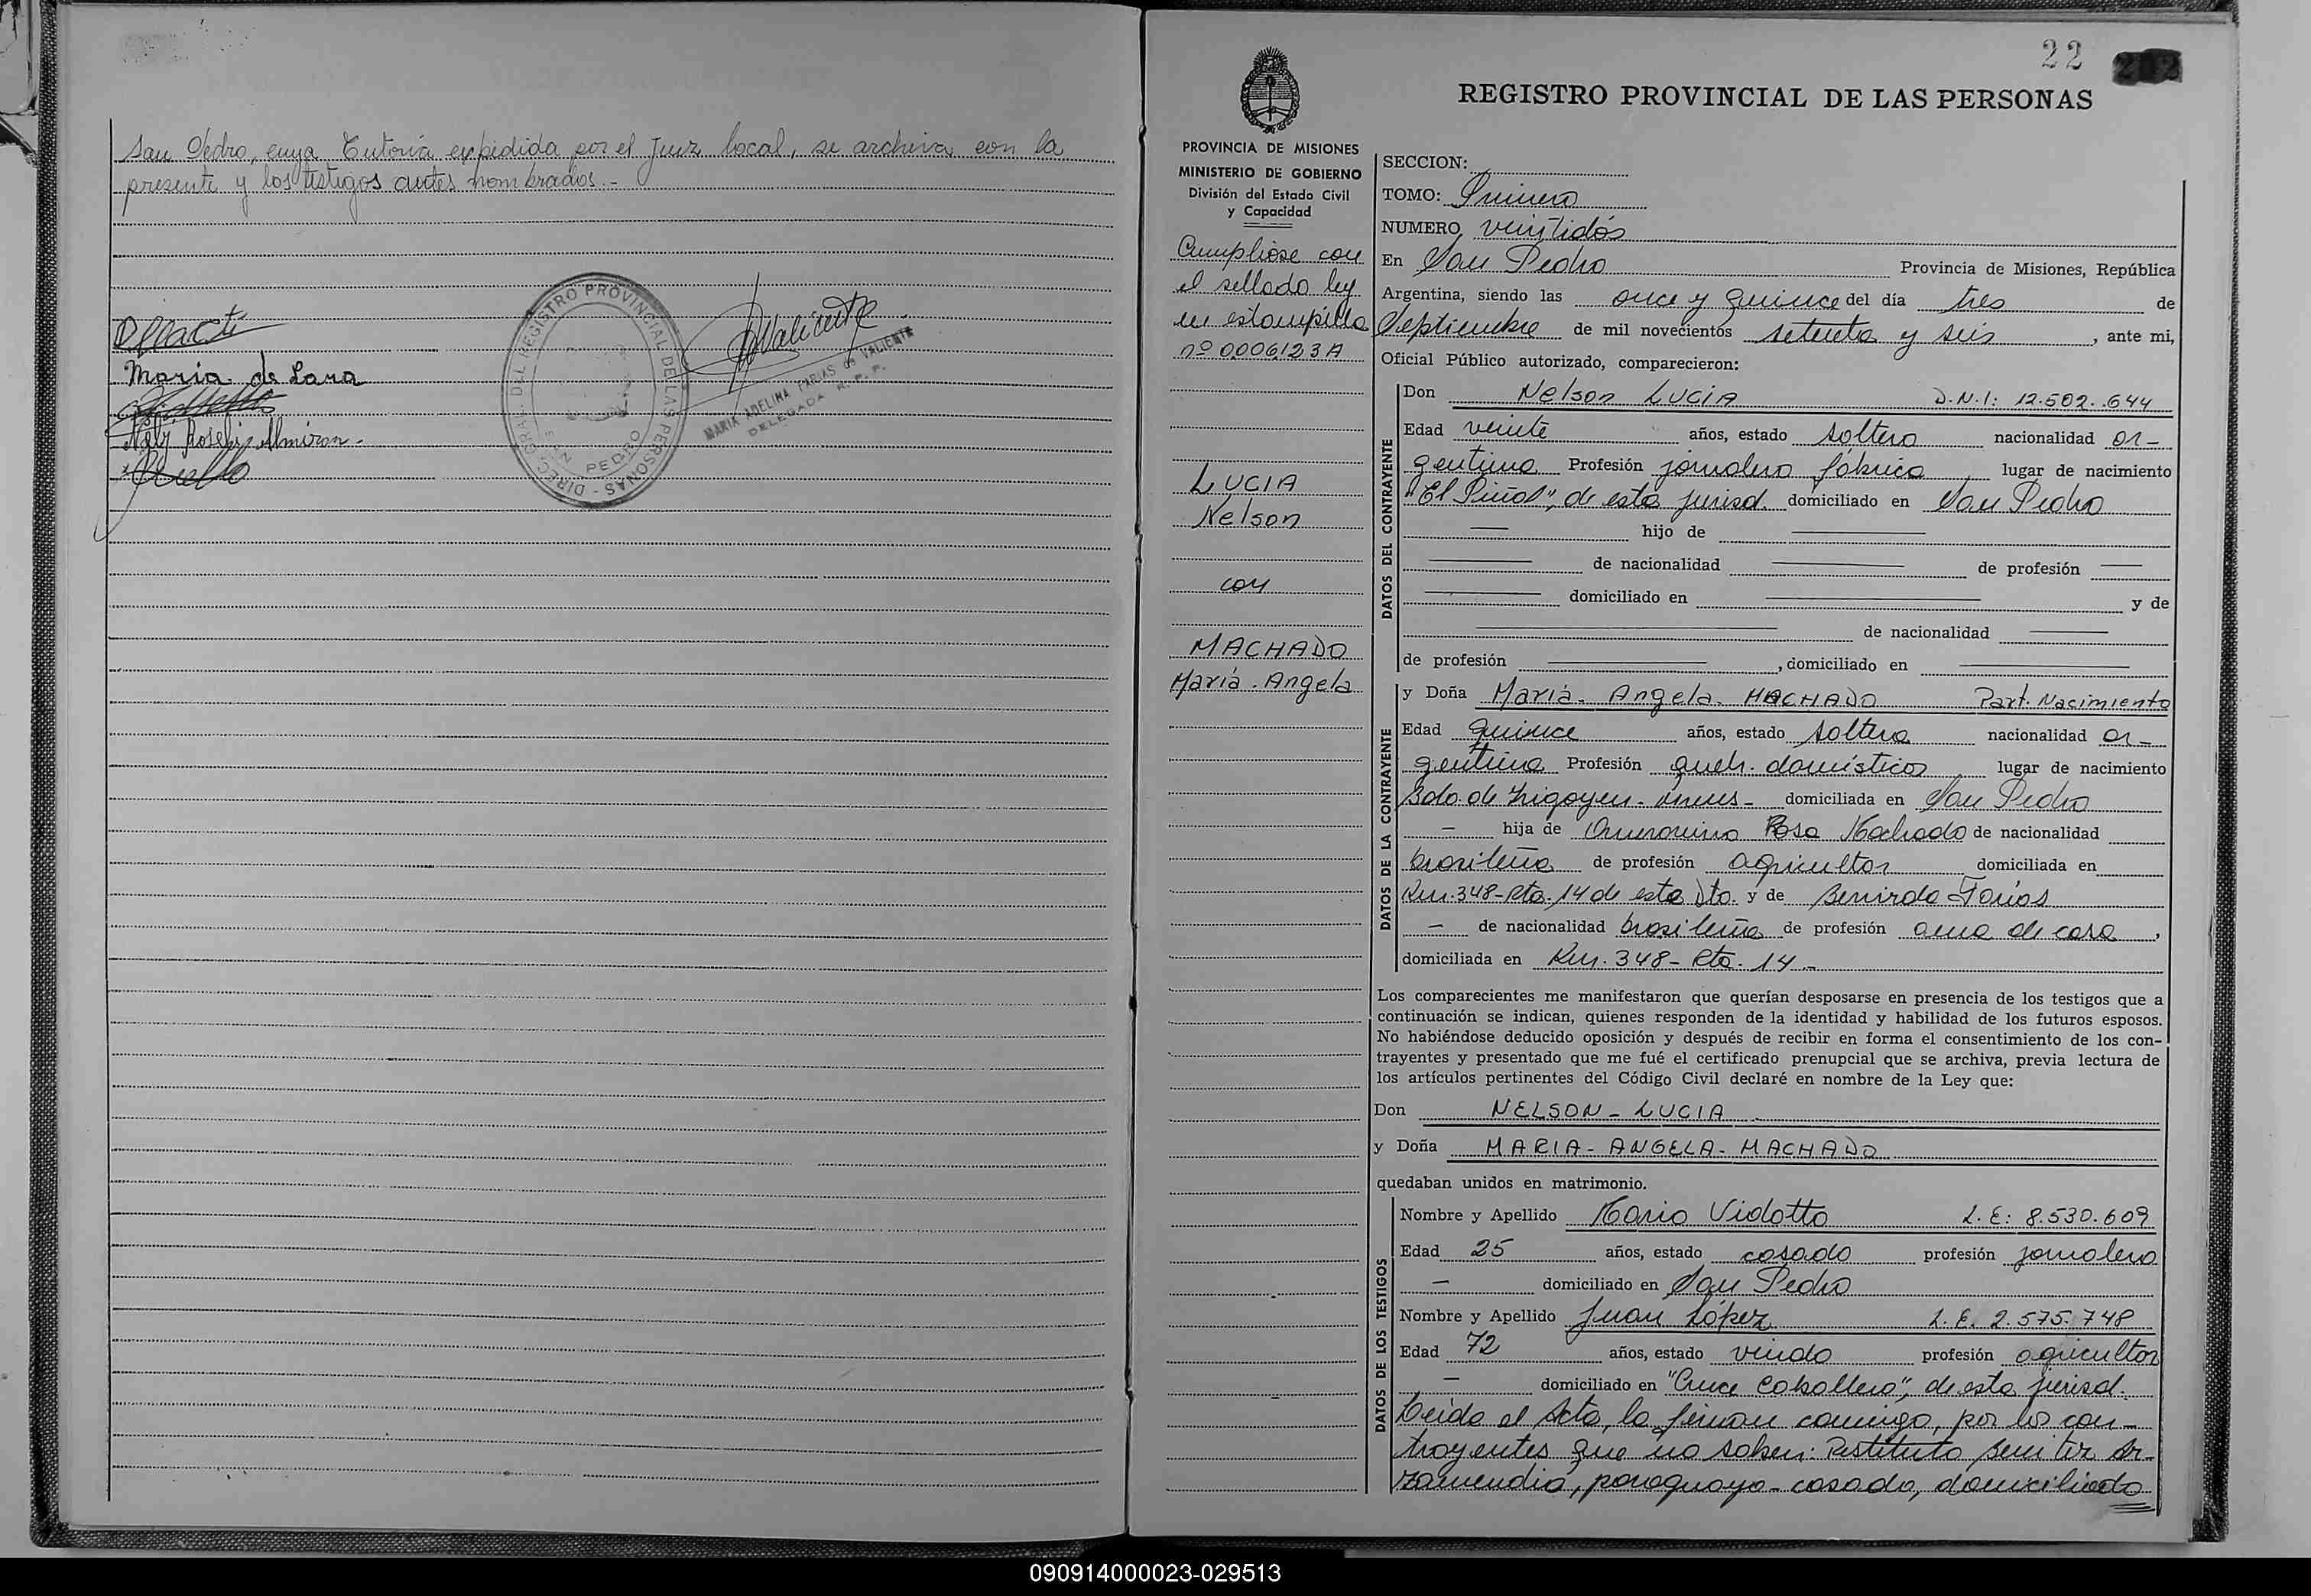 San Pedro, cuya Tutoria expedida por el Juez local, se archiva con la
presente y los testigos antes nombrados.-
Maria de Lara
Nely Roseli Almiron.-
DIREC. GRAL. DEL REGISTRO PROVINCIAL DE LAS PERSONAS -
SAN PEDRO
MARIA ADELINA FARIAS de VALIENTE
DELEGADA R. P. P.
22
REGISTRO PROVINCIAL DE LAS PERSONAS
PROVINCIA DE MISIONES
MINISTERIO DE GOBIERNO
División del Estado Civil
y Capacidad
Cumpliose con
el sellado ley
en estampilla
nº 0006123A
LUCIA
Nelson
con
MACHADO
Maria. Angela
SECCION:
TOMO: Primero
NUMERO veintidós
En San Pedro Provincia de Misiones, República
Argentina, siendo las once y quince del día tres de
Septiembre de mil novecientos setenta y seis, ante mi,
Oficial Público autorizado, comparecieron:
DATOS DEL CONTRAYENTE
Don Nelson LUCIA D.N.I: 12.502.644
Edad veinte años, estado soltero nacionalidad ar-
gentina Profesión jornalero fábrica lugar de nacimiento
"El Piñal", de esta jurisd. domiciliado en San Pedro
— hijo de —
— de nacionalidad — de profesión —
— domiciliado en — y de
— de nacionalidad —
de profesión — , domiciliado en —
DATOS DE LA CONTRAYENTE
y Doña Maria. Angela. MACHADO Part. Nacimiento
Edad quince años, estado soltera nacionalidad ar-
gentina Profesión queh. domésticos lugar de nacimiento
Bdo. de Irigoyen - Mnes - domiciliada en San Pedro
— hija de Rosa Machado de nacionalidad
brasileña de profesión agricultor domiciliada en
Km. 348-Rta. 14 de este Dto. y de Farias
— de nacionalidad brasileña de profesión ama de casa,
domiciliada en Km. 348- Rta. 14 -
Los comparecientes me manifestaron que querían desposarse en presencia de los testigos que a
continuación se indican, quienes responden de la identidad y habilidad de los futuros esposos.
No habiéndose deducido oposición y después de recibir en forma el consentimiento de los con-
trayentes y presentado que me fué el certificado prenupcial que se archiva, previa lectura de
los artículos pertinentes del Código Civil declaré en nombre de la Ley que:
Don NELSON - LUCIA
y Doña MARIA - ANGELA - MACHADO
quedaban unidos en matrimonio.
DATOS DE LOS TESTIGOS
Nombre y Apellido Mario Vidotto L.E: 8.530.609
Edad 25 años, estado casado profesión jornalero
— domiciliado en San Pedro
Nombre y Apellido Juan López L.E. 2.575.748
Edad 72 años, estado viudo profesión agricultor
— domiciliado en "Cruce Caballero", de esta jurisd.
Leída el Acta, la firman conmigo, por los con-
trayentes que no saben: Restituto Benitez Ar-
zamendia, paraguayo - casado, domiciliado
090914000023-029513